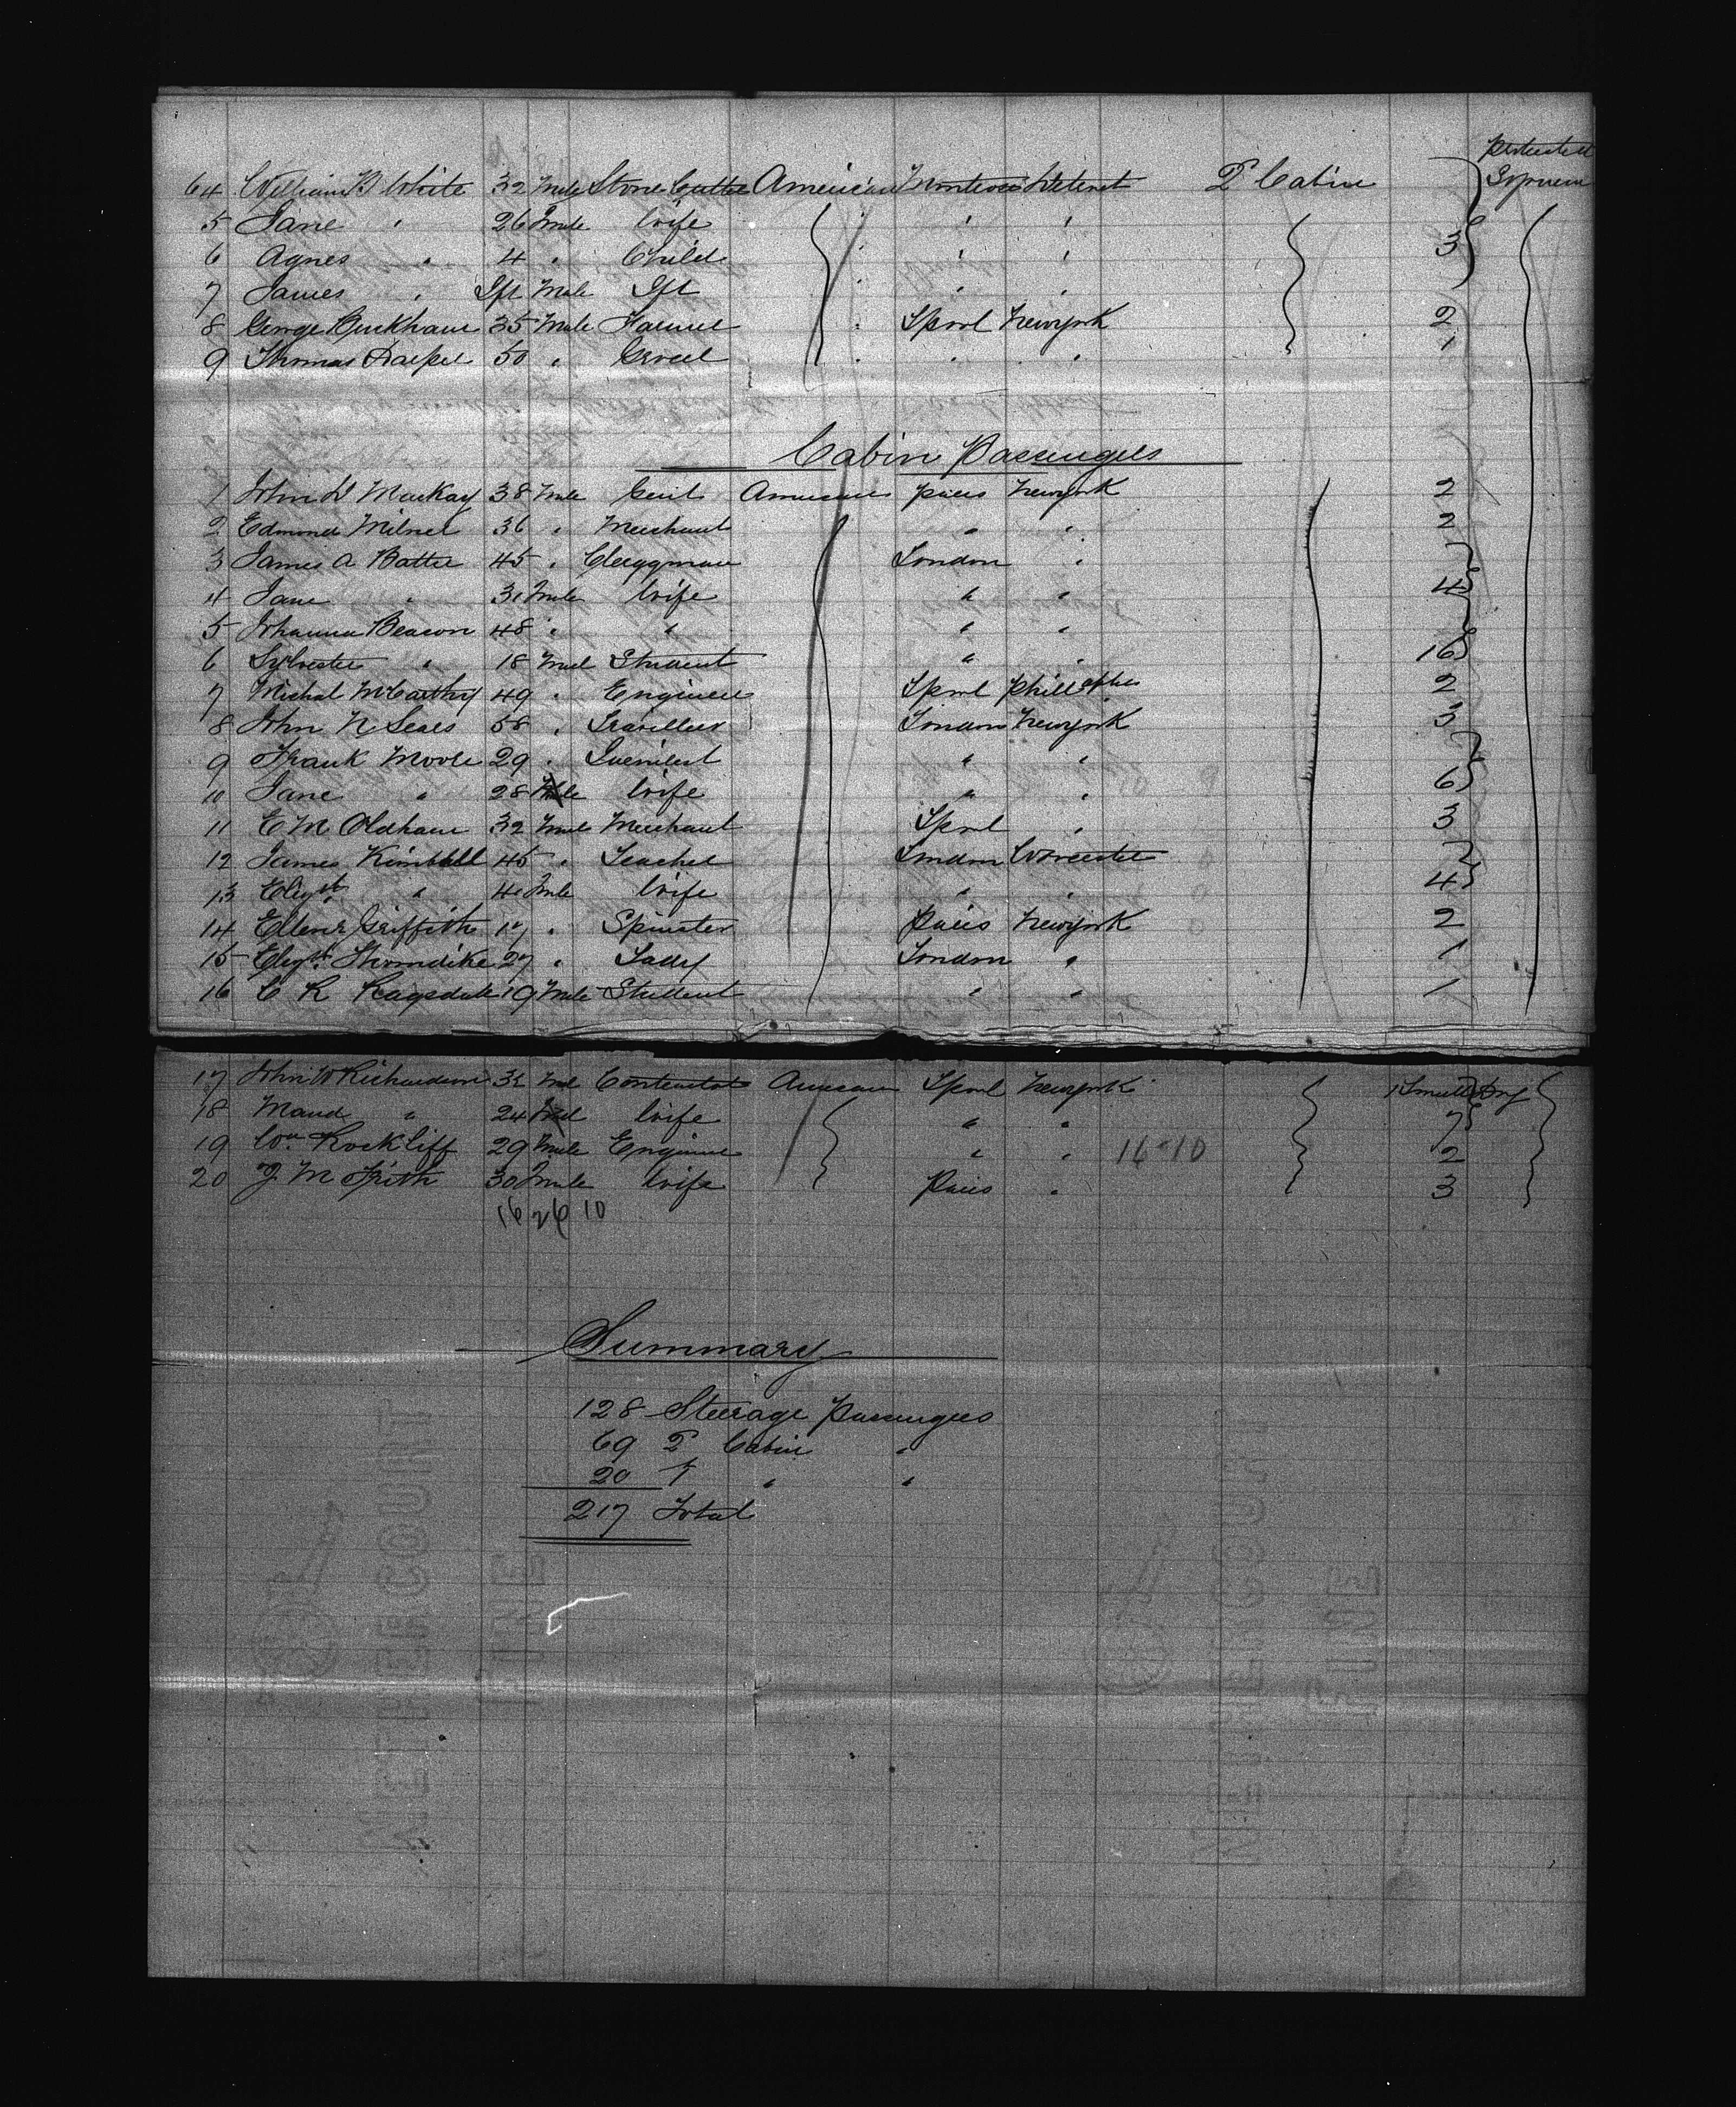 Protracted
Sojourn
64 William B White 32 Male Stone Cutter American Detroit 2 Cabin
5 Jane " 26 Fmle Wife " "
6 Agnes " 4 " Child " " 3
7 James " Ift Male Ift " "
8 George Buckham 35 Male Farmer Lpool Newyork 2
9 Thomas 50 " " " 1
Cabin Passengers
1 John W Mackay 38 Male Gent American Paris Newyork 2
2 Edmond Milner 36 " Merchant " " 2
3 James A Battie 45 " Clergyman London "
4 Jane " 31 Fmle Wife " " 4
5 Johanna Beacon 48 " " " "
6 Sylvester " 18 Male Student " " 16
7 Michal McCarthy 49 " Engineer Lpool 2
8 John N Sears 58 " Traveller London Newyork 3
9 Frank Moore 29 " " "
10 Jane " 28 Wife " " 6
11 E M Oldham 32 Male Merchant Lpool " 3
12 James Kimball 45 " Teacher London Worcester
13 Elizth " 41 Fmle Wife " " 4
14 Ellenr Griffith 17 " Spinster Paris Newyork 2
15 Elizth Thorndike 27 " Lady London " 1
16 C R Ragsdale 19 Male Student " " 1
17 John W Richardson 32 Male Contractor American Lpool Newyork 1 Small Dog
18 Maud " 24 Wife " " 7
19 Wm Rockliff 29 Male Engineer " " 16-10 2
20 J M Frith 30 Fmle Wife Paris " 3
16 26 10
Summary
128 Steerage Passengers
69 2 Cabin "
20 1 " "
217 Total